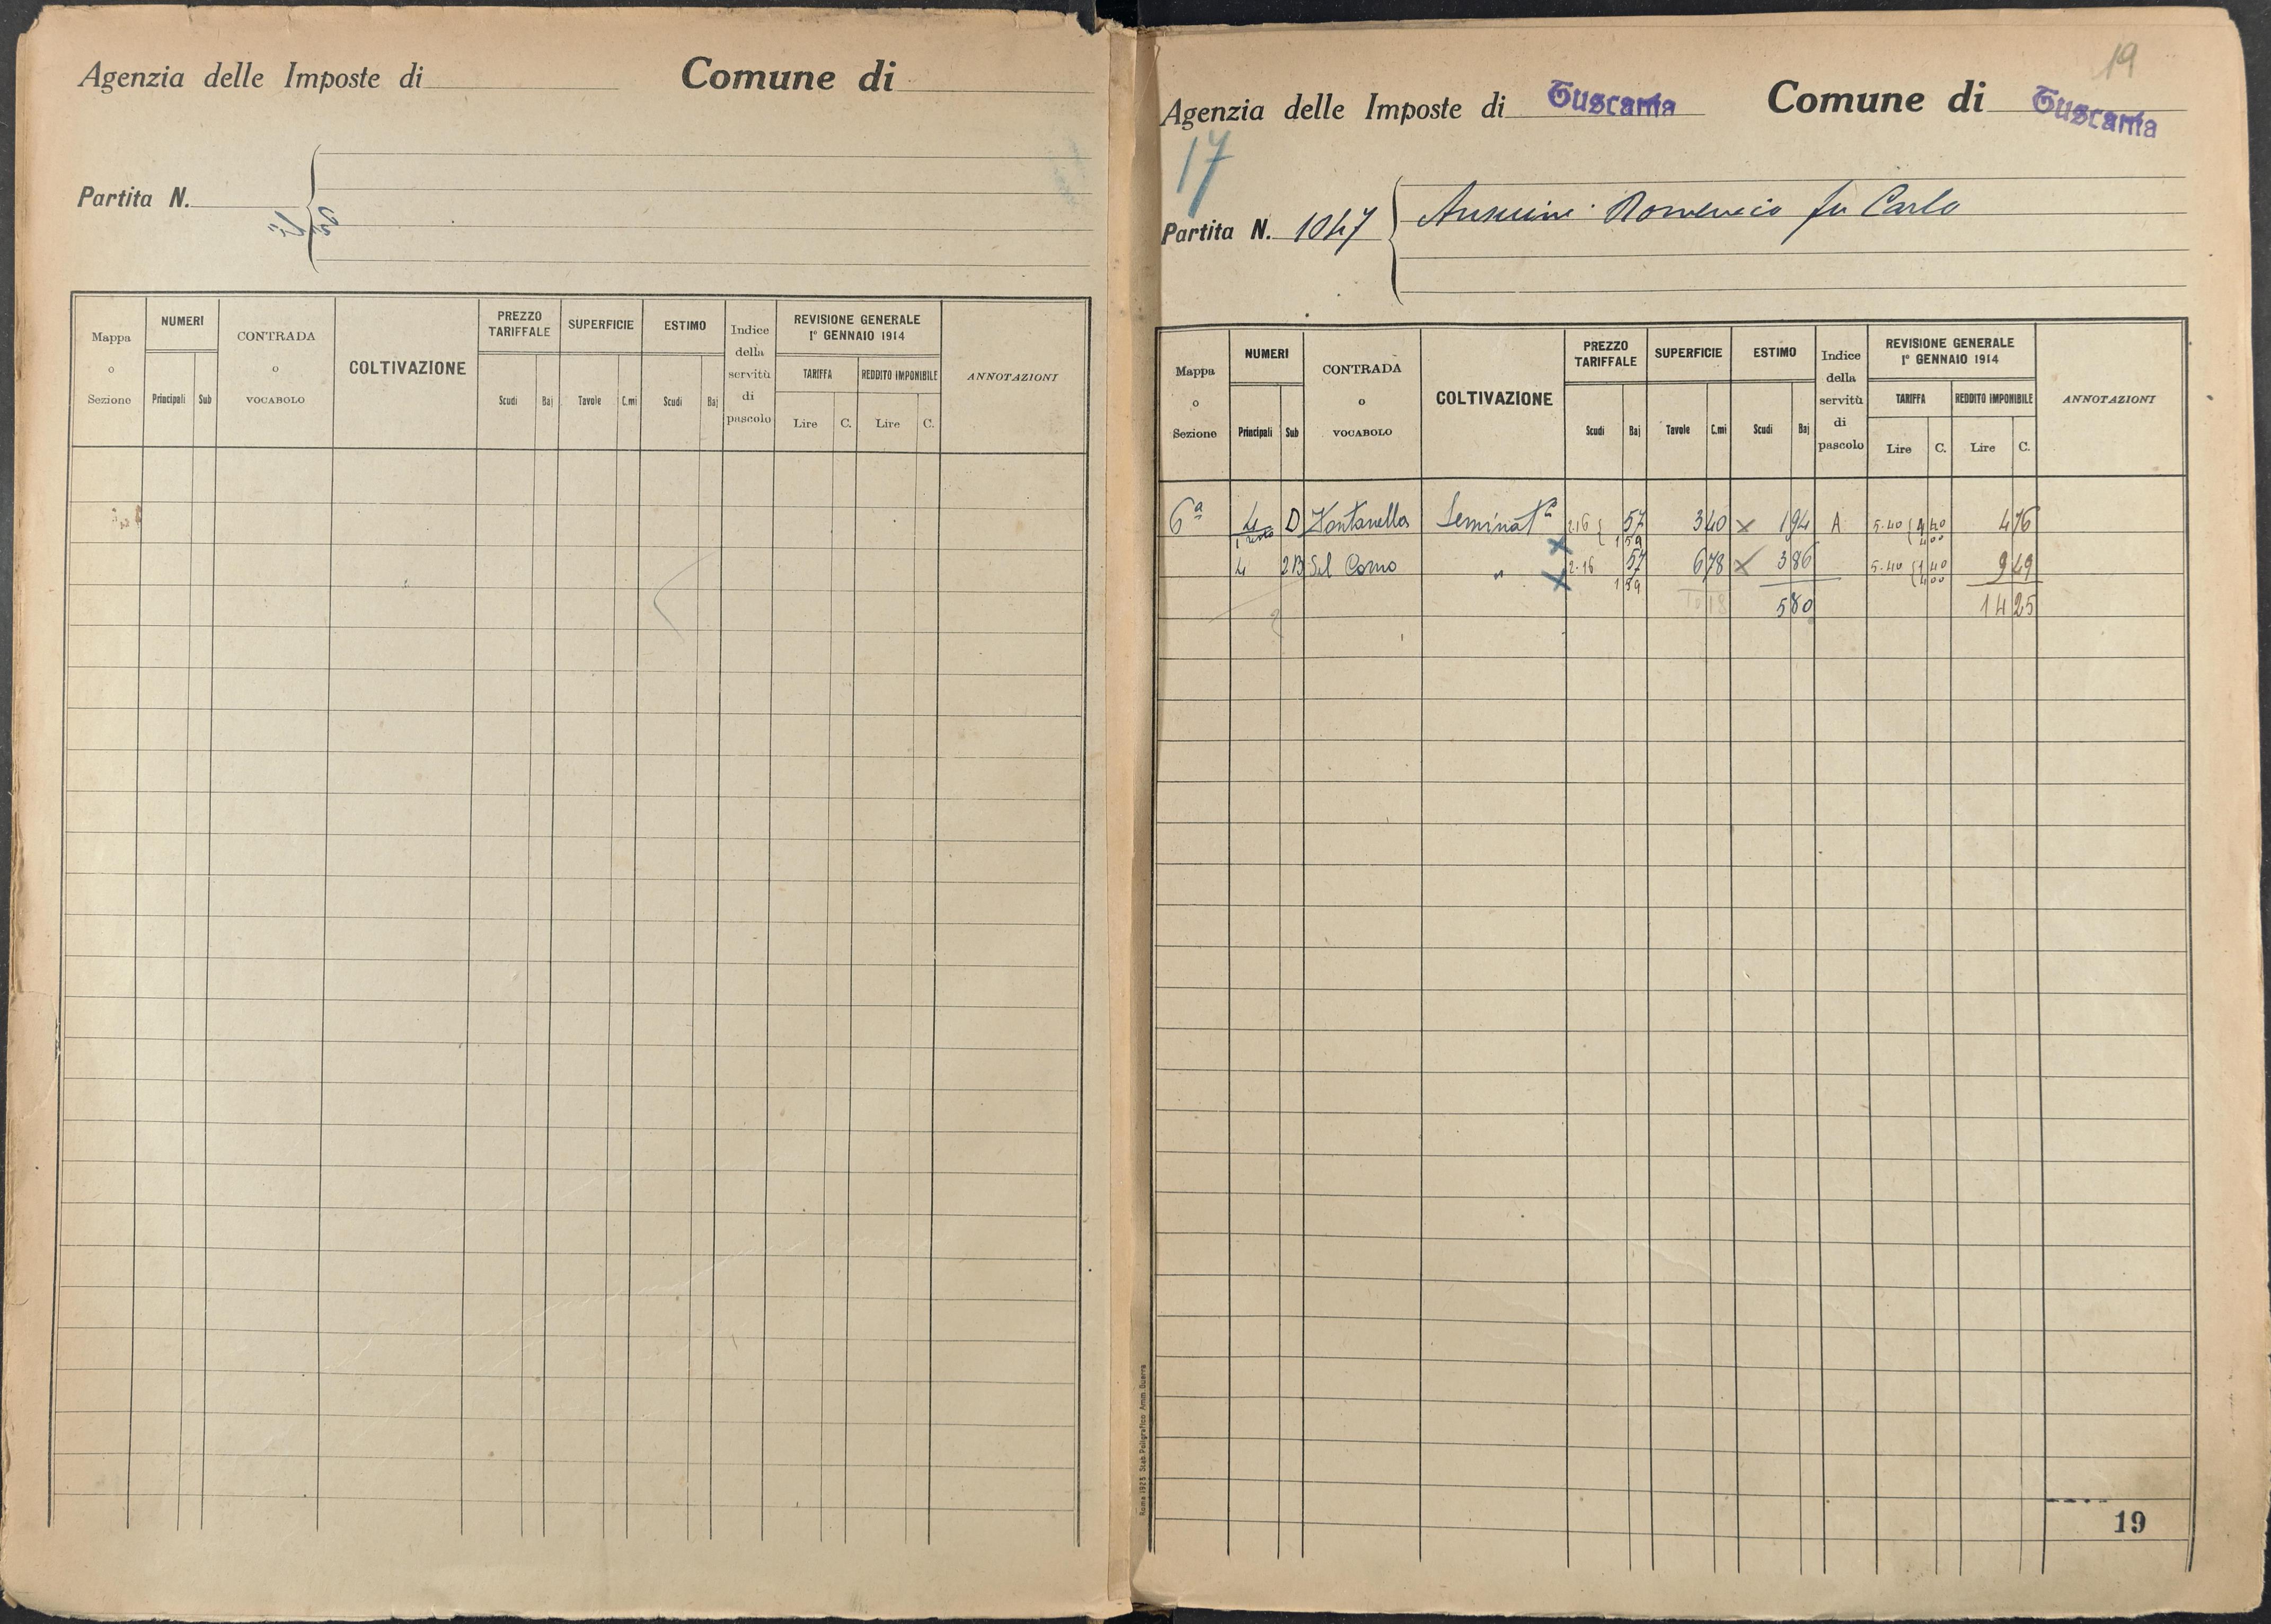 Agenzia delle Imposte di Comune di
Partita N.
Mappa o Sezione NUMERI Principali Sub CONTRADA o VOCABOLO COLTIVAZIONE PREZZO TARIFFALE Scudi Baj SUPERFICIE Tavole C.mi ESTIMO Scudi Baj Indice della servitù di pascolo REVISIONE GENERALE 1° GENNAIO 1914 TARIFFA Lire C. REDDITO IMPONIBILE Lire C. ANNOTAZIONI
19
Agenzia delle Imposte di Tuscania Comune di Tuscania
17
Partita N. 1047 Domenico fu Carlo
Mappa o Sezione NUMERI Principali Sub CONTRADA o VOCABOLO COLTIVAZIONE PREZZO TARIFFALE Scudi Baj SUPERFICIE Tavole C.mi ESTIMO Scudi Baj Indice della servitù di pascolo REVISIONE GENERALE 1° GENNAIO 1914 TARIFFA Lire C. REDDITO IMPONIBILE Lire C. ANNOTAZIONI
6ª 4 D Fontanella Seminatº 2.16 57 3 40 x 1 94 A 5.40 1 40 4 76
1 resto 1 59 4 00
4 2B Sel Corno " 2.16 57 6 78 x 3 86 5.40 1 40 9 49
1 59 4 00
10 18 5 80 14 25
Roma 1925 Stab. Poligrafico Amm. Guerra
19